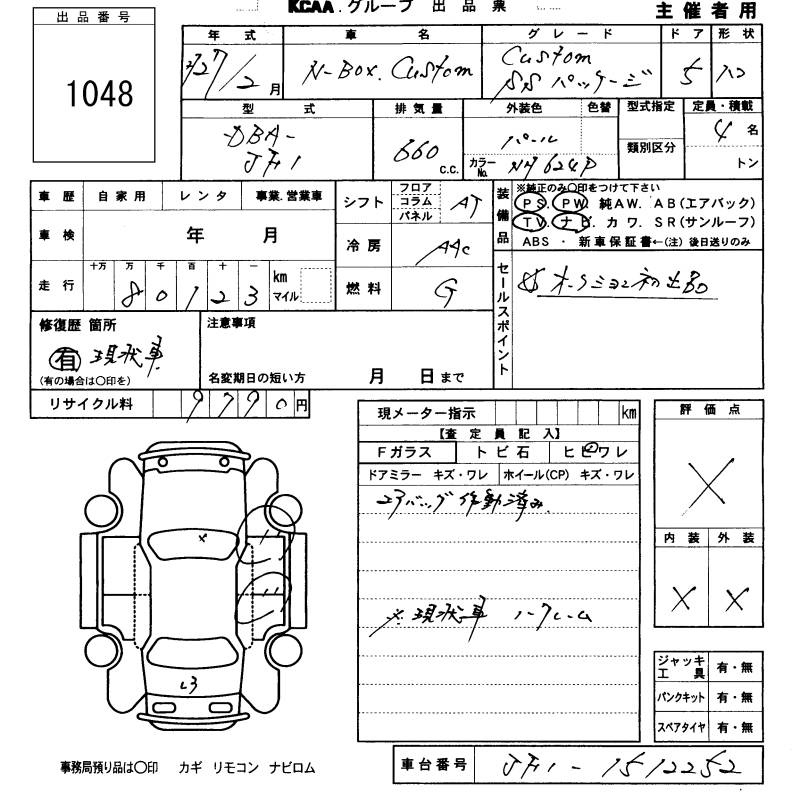 KCAA.グループ 出品票
主催者用
出品番号
1048
年式 車名 グレード ドア 形状
27/2月 N-Box.Custom Custom SSパッケージ 5 ハコ
型式 排気量 外装色 色替 型式指定 定員・積載
DBA-JF1 660 C.C. パール カラーNo. NH624P 類別区分 4名
トン
車歴 自家用 レンタ 事業.営業車
車検 年 月
走行 十万 万 千 百 十 一 km マイル
80123
シフト フロア コラム パネル AT
冷房 AAC
燃料 G
装備品
※純正のみ○印をつけて下さい
PS. PW. 純AW. AB(エアバック)
TV. ナビ. カワ. SR(サンルーフ)
ABS ・ 新車保証書←(注) 後日送りのみ
セールスポイント
オークション初出品
修復歴 箇所
有 現状車
(有の場合は○印を)
注意事項
名変期日の短い方 月 日まで
リサイクル料 9790円
現メーター指示 km
【査定員記入】
Fガラス トビ石 ヒビワレ
ドアミラー キズ・ワレ ホイール(CP) キズ・ワレ
エアバッグ作動済み
※現状車 ノークレーム
評価点
X
内装 外装
X X
ジャッキ工具 有・無
パンクキット 有・無
スペアタイヤ 有・無
x
L3
事務局預り品は○印 カギ リモコン ナビロム
車台番号 JF1-1512252